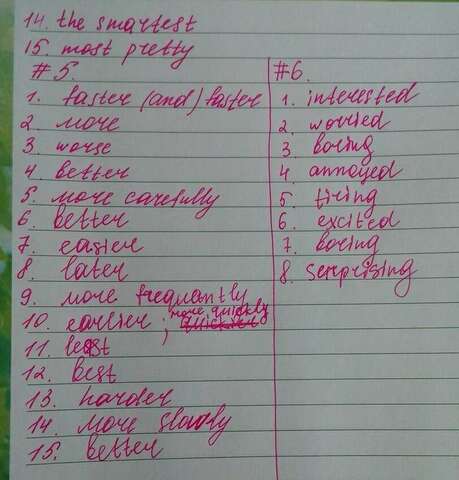 14. the smartest
15. most pretty
#5.
1. faster (and) faster
2. more
3. worse
4. better
5. more carefully
6. better
7. easier
8. later
9. more frequently
10. earlier; more quickly
11. best
12. best
13. harder
14. more slowly
15. better
#6.
1. interested
2. worried
3. boring
4. annoyed
5. tiring
6. excited
7. boring
8. surprising